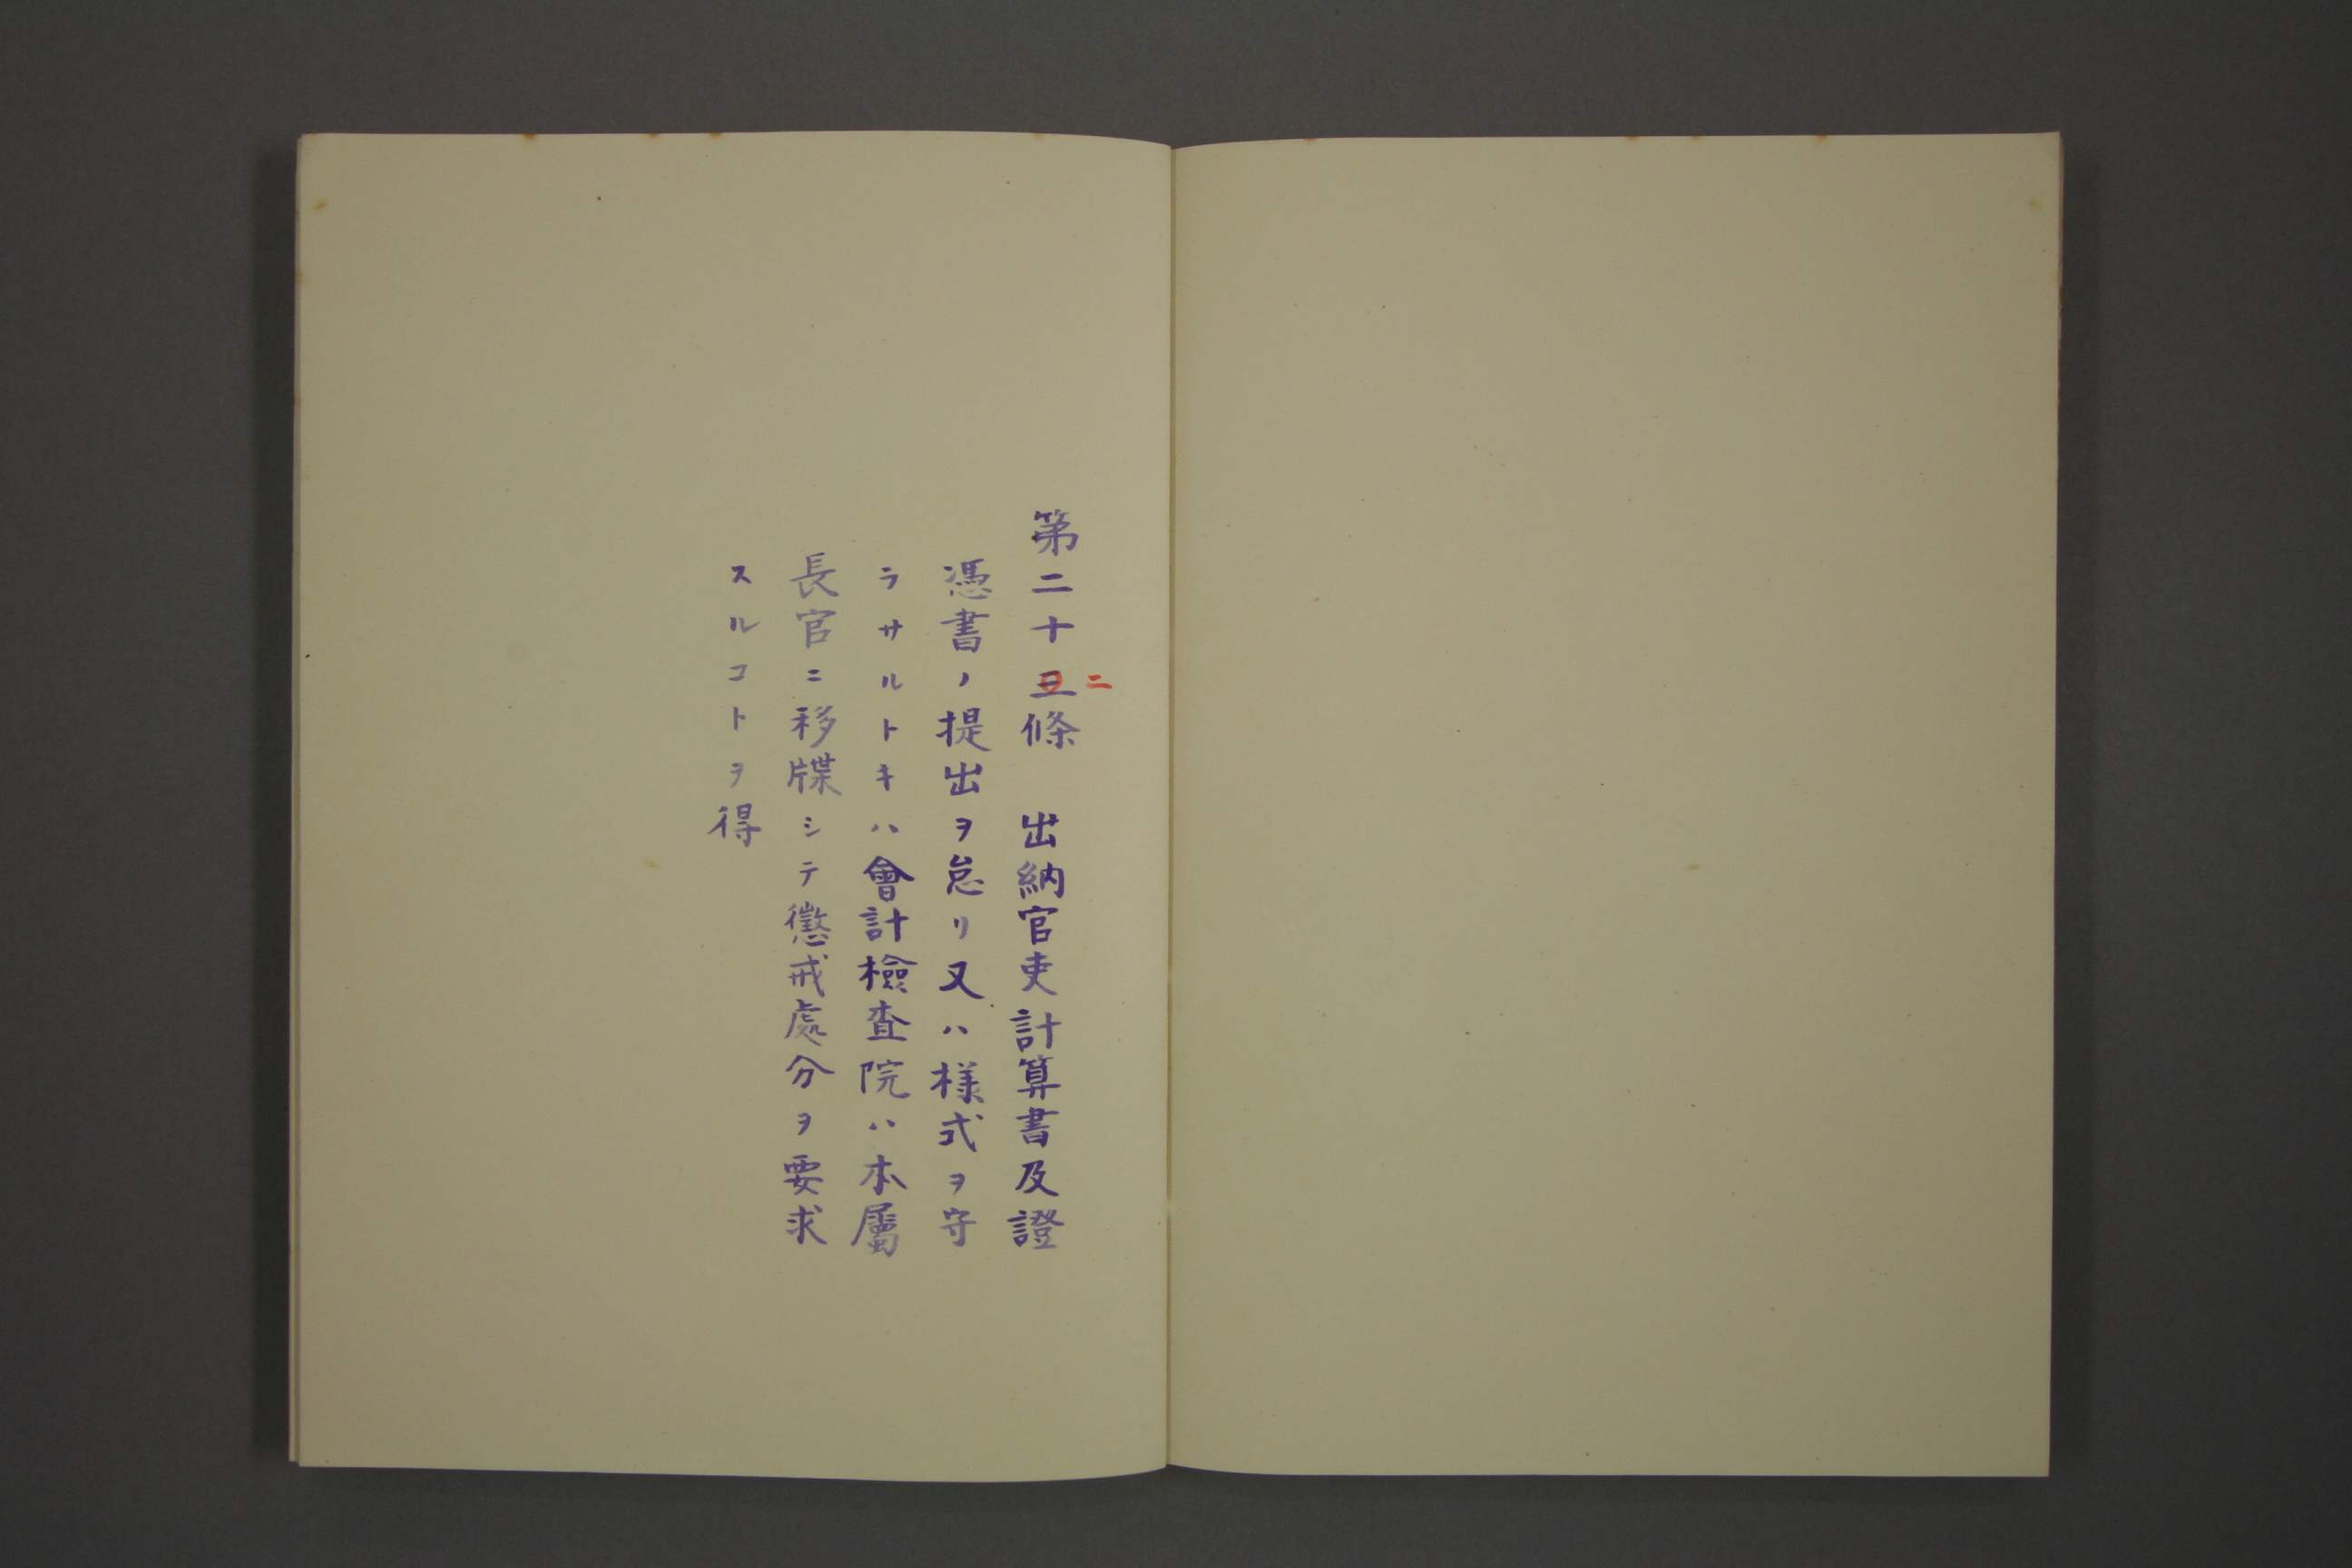 第二十三條　出納官吏計算書及證
二
憑書ノ提出ヲ怠リ又ハ樣式ヲ守
ラサルトキハ會計檢査院ハ本屬
長官ニ移牒シテ懲戒處分ヲ要求
スルコトヲ得